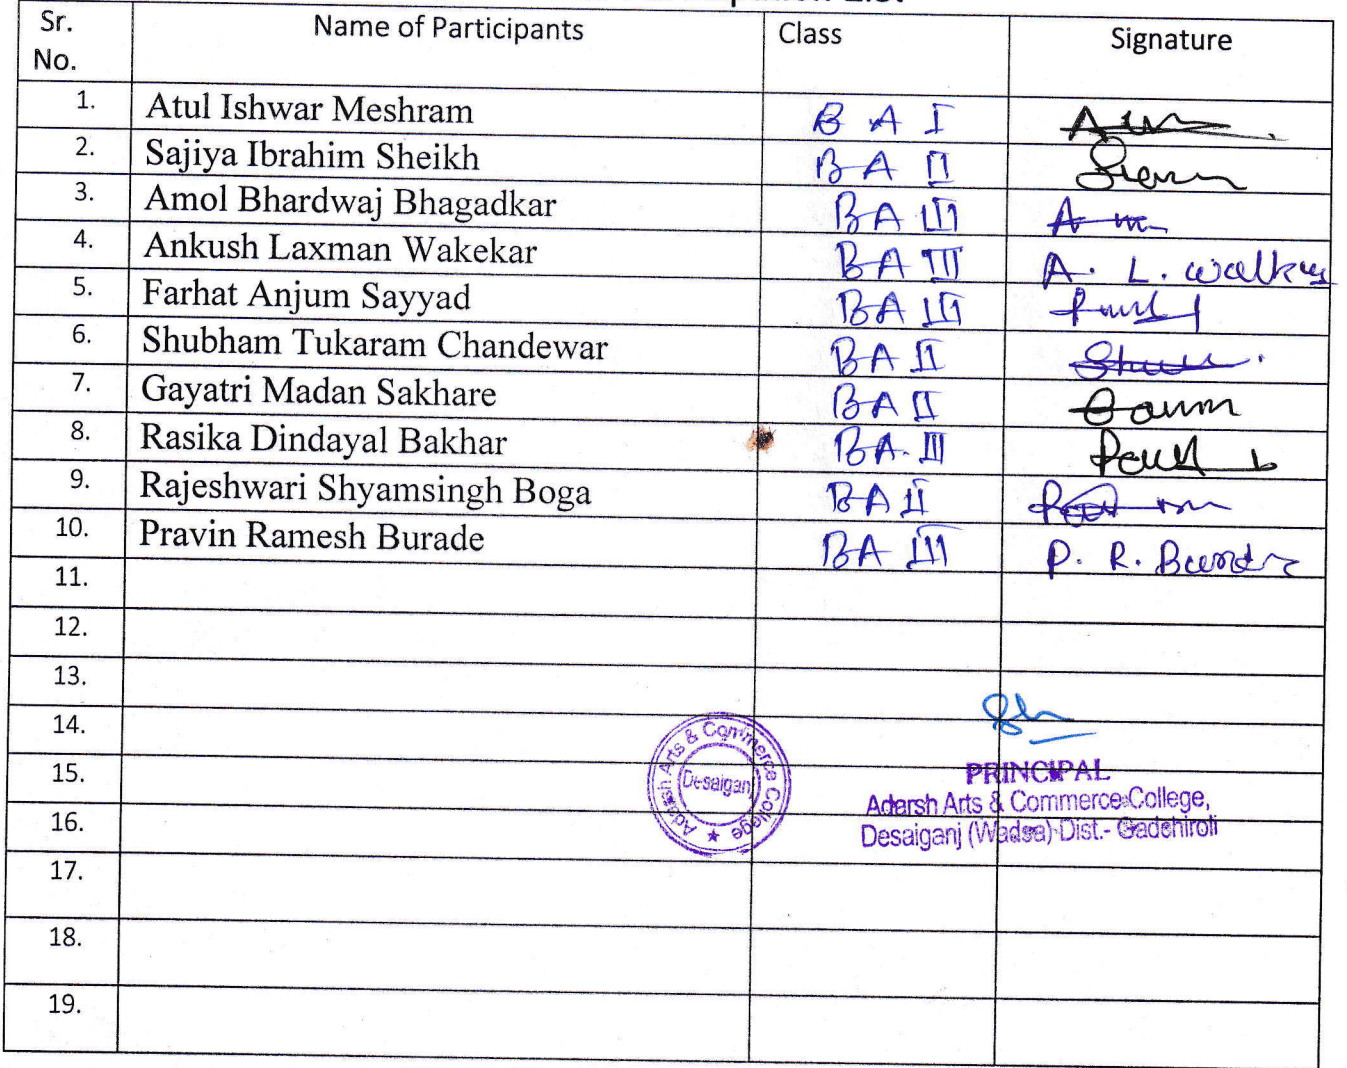 List
Sr. No. Name of Participants Class Signature
1. Atul Ishwar Meshram B A I
2. Sajiya Ibrahim Sheikh B A II
3. Amol Bhardwaj Bhagadkar B A III
4. Ankush Laxman Wakekar B A III A. L.
5. Farhat Anjum Sayyad B A III
6. Shubham Tukaram Chandewar B A II
7. Gayatri Madan Sakhare B A II
8. Rasika Dindayal Bakhar B A. III
9. Rajeshwari Shyamsingh Boga B A II
10. Pravin Ramesh Burade B A III P. R.
11.
12.
13.
14.
15.
16.
17.
18.
19.
Adarsh Arts & Commerce College
Desaiganj
PRINCIPAL
Adarsh Arts & Commerce College,
Desaiganj (Wadsa) Dist.- Gadchiroli